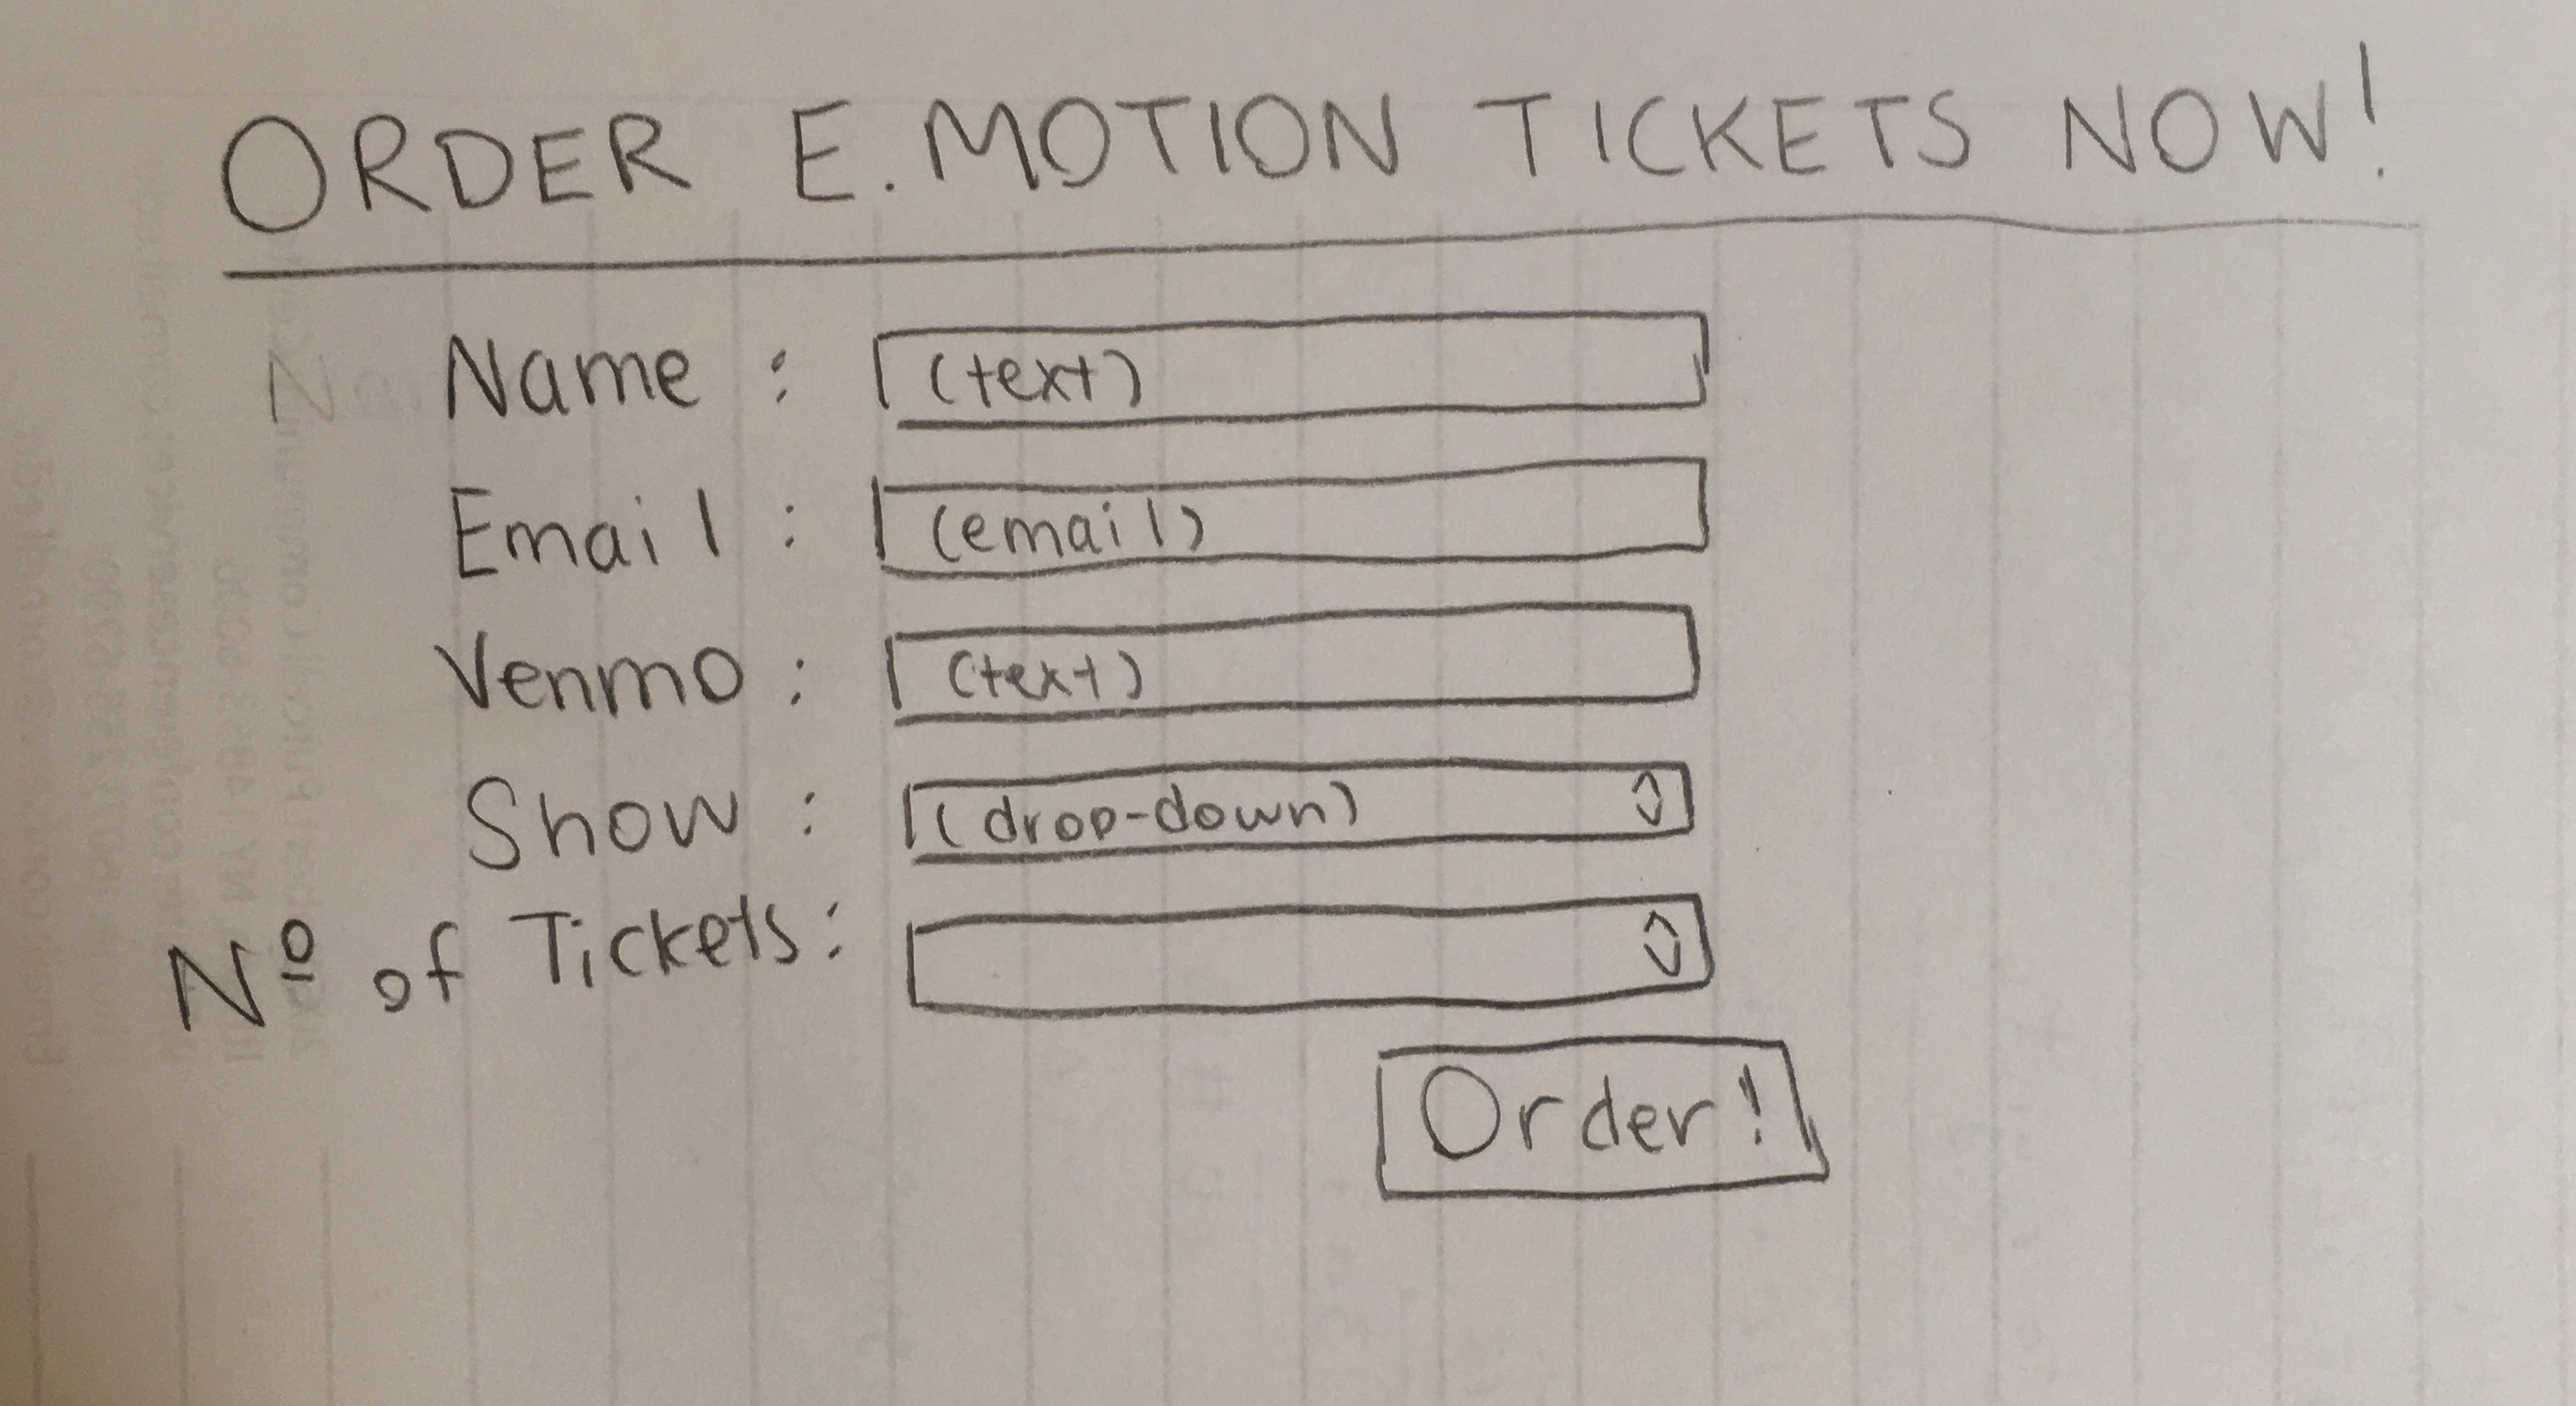 ORDER E.MOTION TICKETS NOW!
Name : (text)
Email : (email)
Venmo : (text)
Show : (drop-down)
Nº of Tickets :
Order!